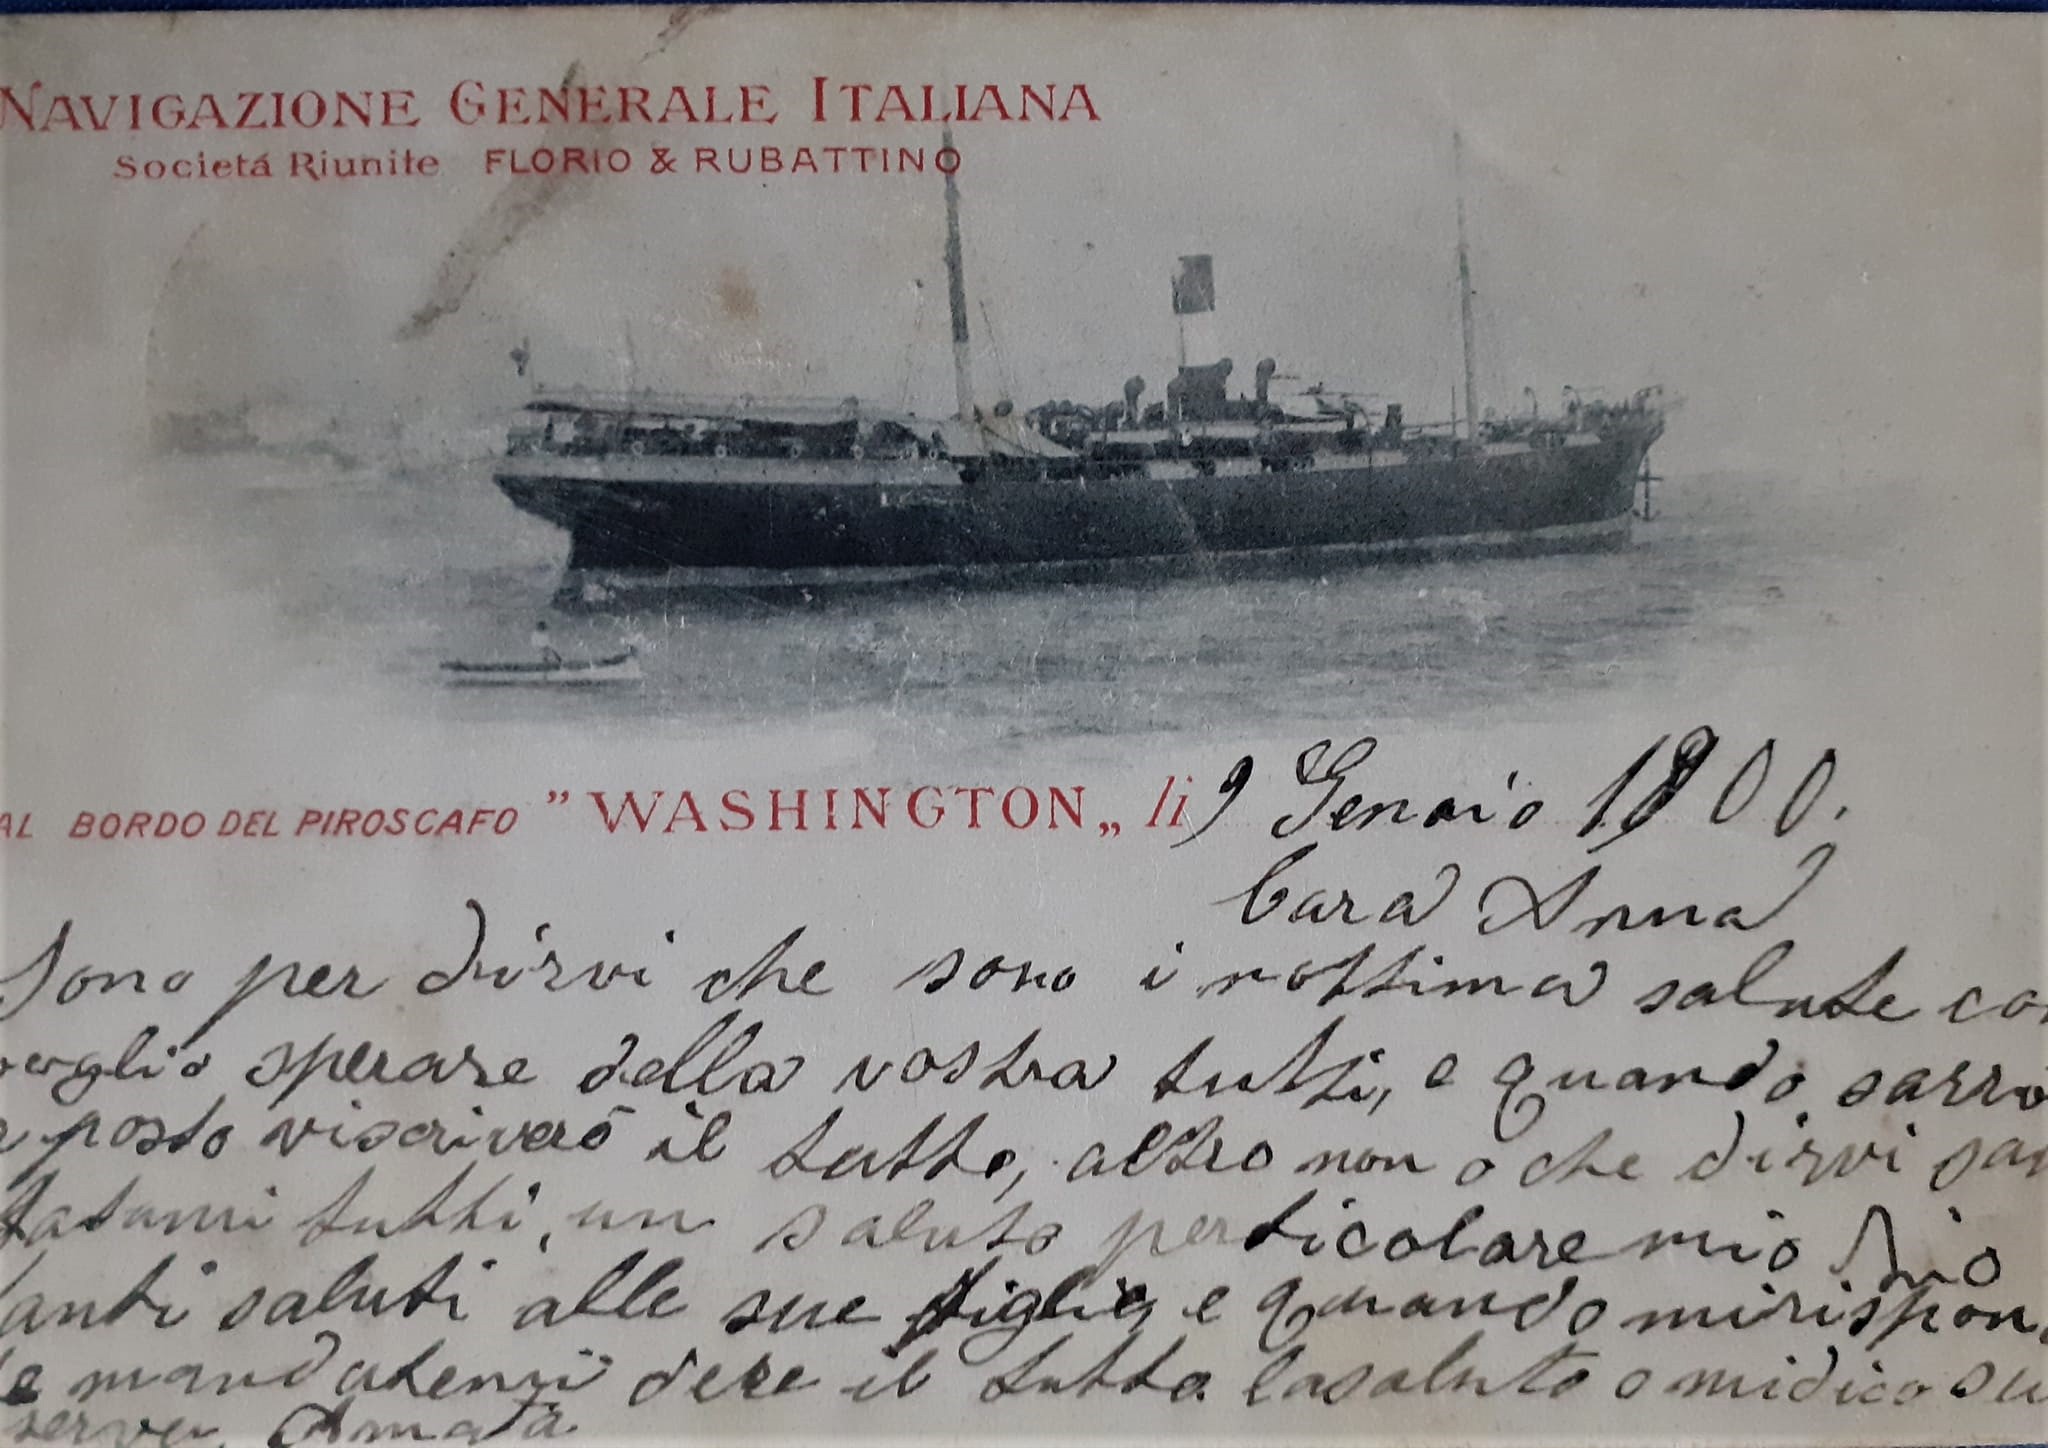 NAVIGAZIONE GENERALE ITALIANA
Societá Riunite FLORIO & RUBATTINO
AL BORDO DEL PIROSCAFO "WASHINGTON„ li 9 Genaio 1900.
Cara Anna
Sono per dirvi che sono i nottima salute co
voglio sperare della vostra tutti, e quando sarró
a posto viscriveró il tutto, altro non o che dirvi sa
tutti, un saluto perticolare mio
tanti saluti alle sue figlie e quando mirispon
e il tutto
serva Amata